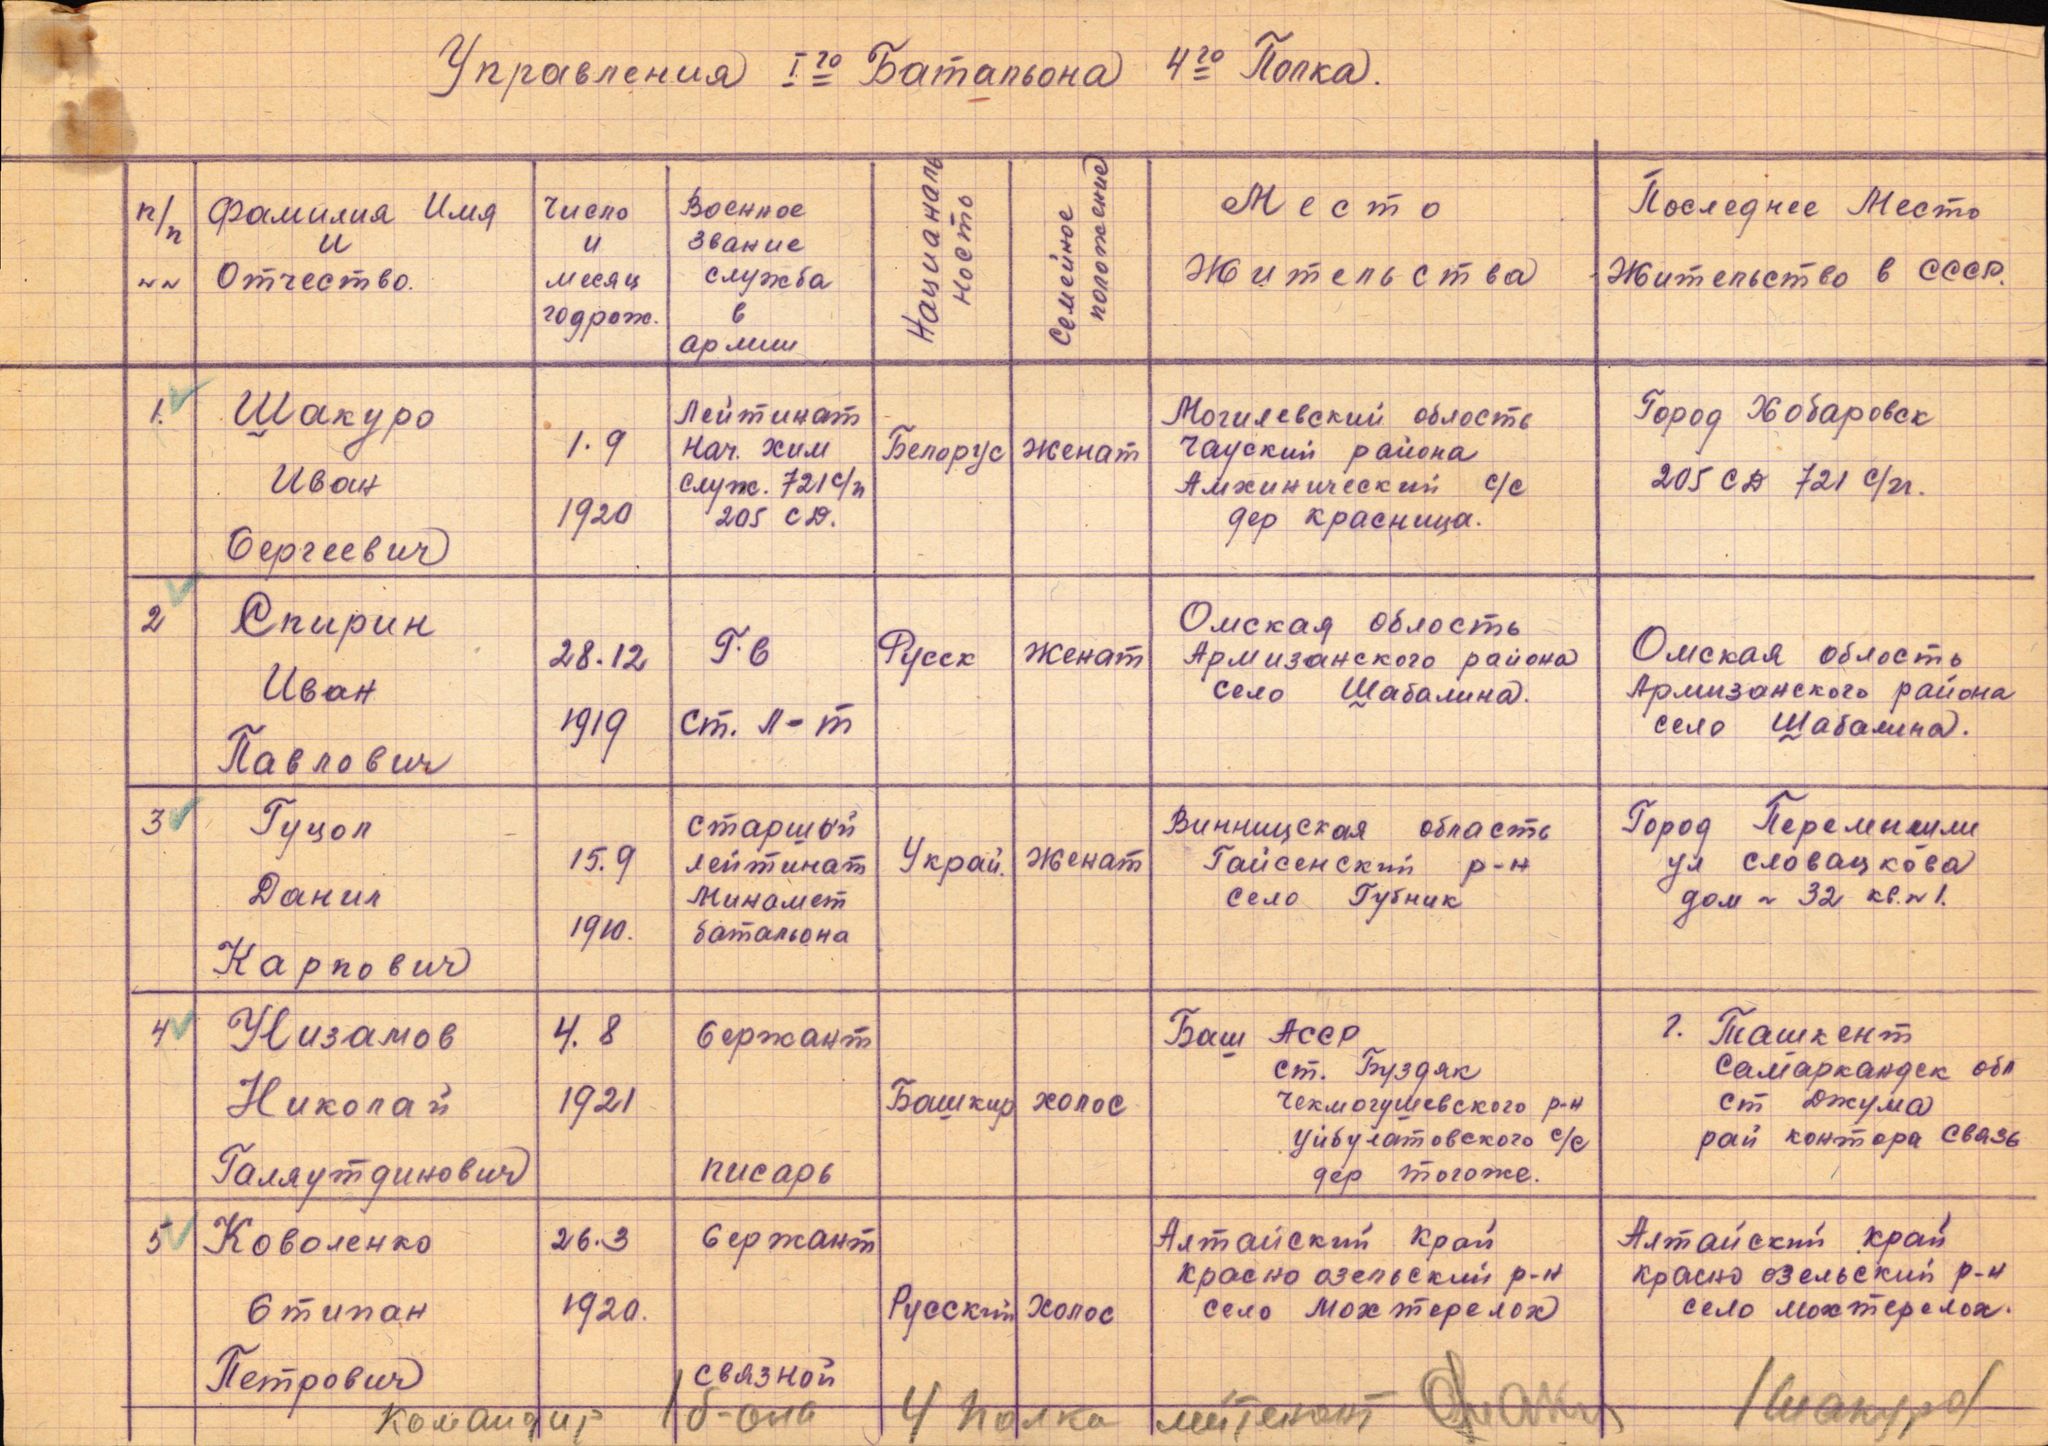 Управления I го Батальона 4 го Полка.
п/п
№№
Фамилия Имя
и
Отчество.
Число
и
месяц
год рож.
Военное
звание
служба
в
армии
Националь
ность
Семейное
положение
Место
Жительства
Последнее Место
Жительство в СССР.
1.
Шакуро
Иван
Сергеевич
1.9
1920
Лейтинат
нач. хим
служ. 721 с/п
205 СД.
Белорус
Женат
Могилевский облость
Чауский района
Амхинический с/с
дер Красница.
Город Хобаровск
205 СД 721 с/п.
2
Спирин
Иван
Павлович
28.12
1919
Г.в
ст. л-т
Русск
Женат
Омская облость
Армизанского района
село Шабалина.
Омская облость
Армизанского района
село Шабалина.
3
Гуцол
Данил
Карпович
15.9
1910.
старшый
лейтинат
Минамет
батальона
Украй.
Женат
Винницская область
Гайсенский р-н
село Губник
Город Перемышли
ул словацкова
дом № 32 кв. № 1.
4
Низамов
Николай
Галяутдинович
4.8
1921
Сержант
писарь
Башкир
холос
Баш АССР
ст. Буздяк
Чекмогушевского р-н
Уйбулатовского с/с
дер тогоже.
г. Ташкент
Самаркандск обл
ст Джума
рай контора связь
5
Коволенко
Стипан
Петрович
26.3
1920.
Сержант
связной
Русский
Холос
Алтайский край
красно озельский р-н
село мохтерелох
Алтайский край
красно озельский р-н
село мохтерелох.
Командир 1 б-она 4 полка лейтенант /Шакуро/